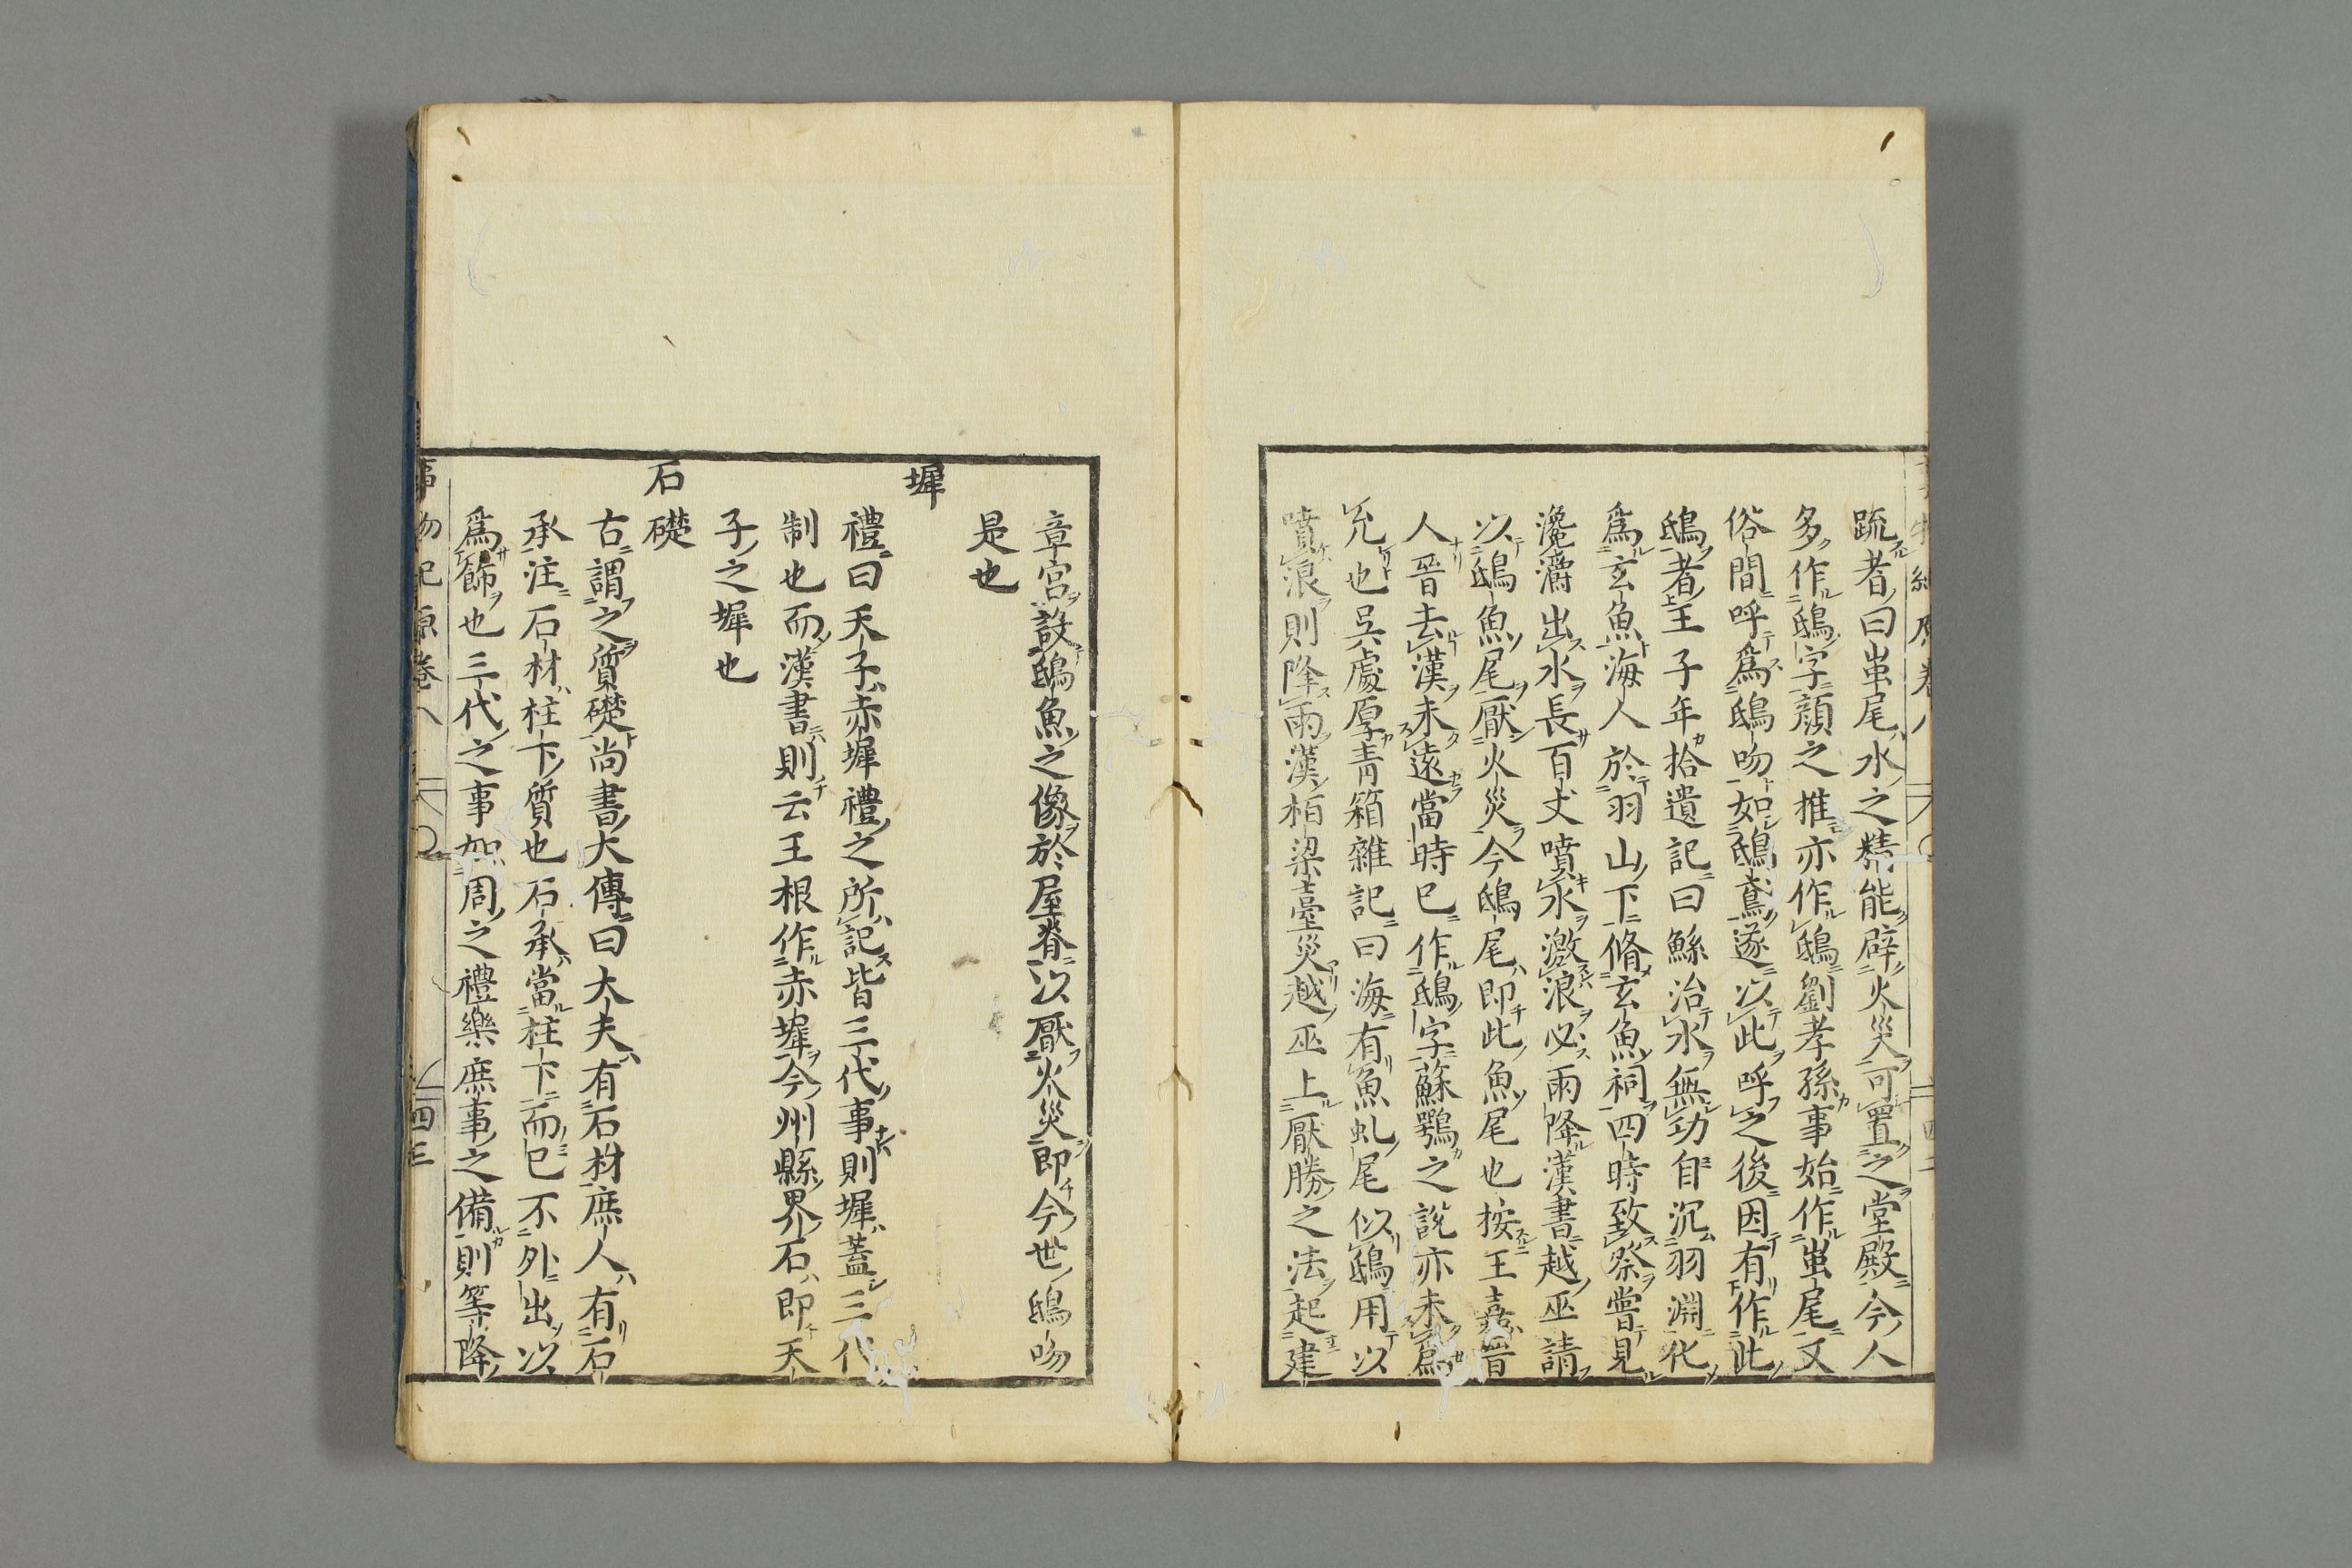 疏者曰蚩尾水之精能辟火災可置之堂殿今人
多作鴟字顏之推亦作鴟劉孝孫事始作蚩尾又
俗間呼爲鴟吻如鴟鳶遂以此呼之後因有作此
鴟者王子年拾遺記曰鯀治水無功自沉羽淵化
爲玄魚海人於羽山下脩玄魚祠四時致祭嘗見
瀺灂出水長百丈噴水激浪必雨降漢書越巫請
以鴟魚尾厭火災今鴟尾即此魚尾也按王嘉晉
人晉去漢未遠當時已作鴟字蘇鶚之說亦未爲
允也吳處厚青箱雜記曰海有魚虬尾似鴟用以
噴浪則降雨漢柏梁臺災越巫上厭勝之法起建
章宮設鴟魚之像於屋脊以厭火災即今世鴟吻
是也
墀
禮曰天子赤墀禮之所記皆三代事則墀蓋三代
制也而漢書則云王根作赤墀今州縣界石即天
子之墀也
石礎
古謂之質礎尚書大傳曰大夫有石材庶人有石
承注石材柱下質也石承當柱下而已不外出以
爲飾也三代之事加周之禮樂庶事之備則等降
事物紀原卷八 四三